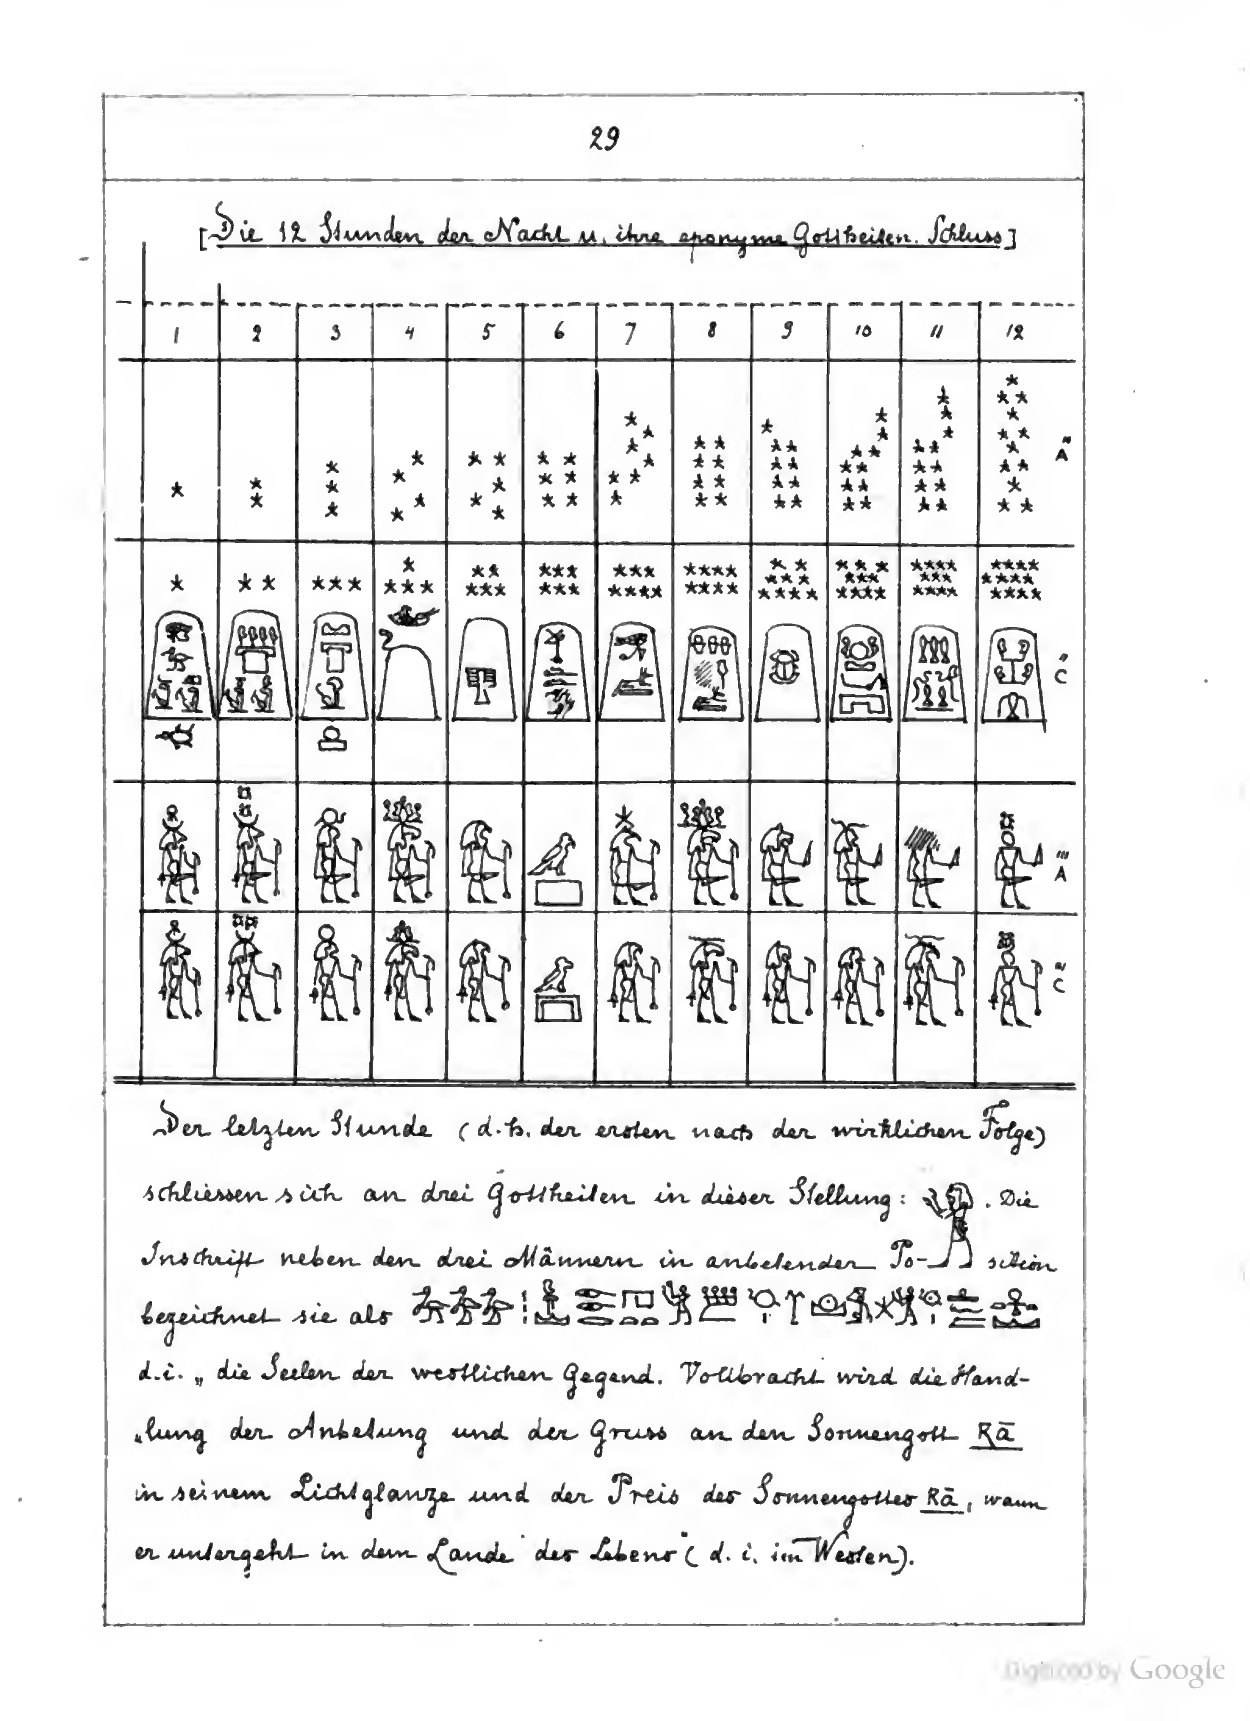 29
[Die 12 Stunden der Nacht u. ihre eponyme Gottheiten. Schluss]
1 2 3 4 5 6 7 8 9 10 11 12
A"
C"
A'''
C'''
Der letzten Stunde (d.h. der ersten nach der wirklichen Folge)
schliessen sich an drei Gottheiten in dieser Stellung: . Die
Inschrift neben den drei Männern in anbetender Po- sition
bezeichnet sie als
d.i. „die Seelen der westlichen Gegend. Vollbracht wird die Hand-
„lung der Anbetung und der Gruss an den Sonnengott Rā
in seinem Lichtglanze und der Preis des Sonnengottes Rā, wann
er untergeht in dem Lande des Lebens" (d. i. im Westen).
Digitized by Google